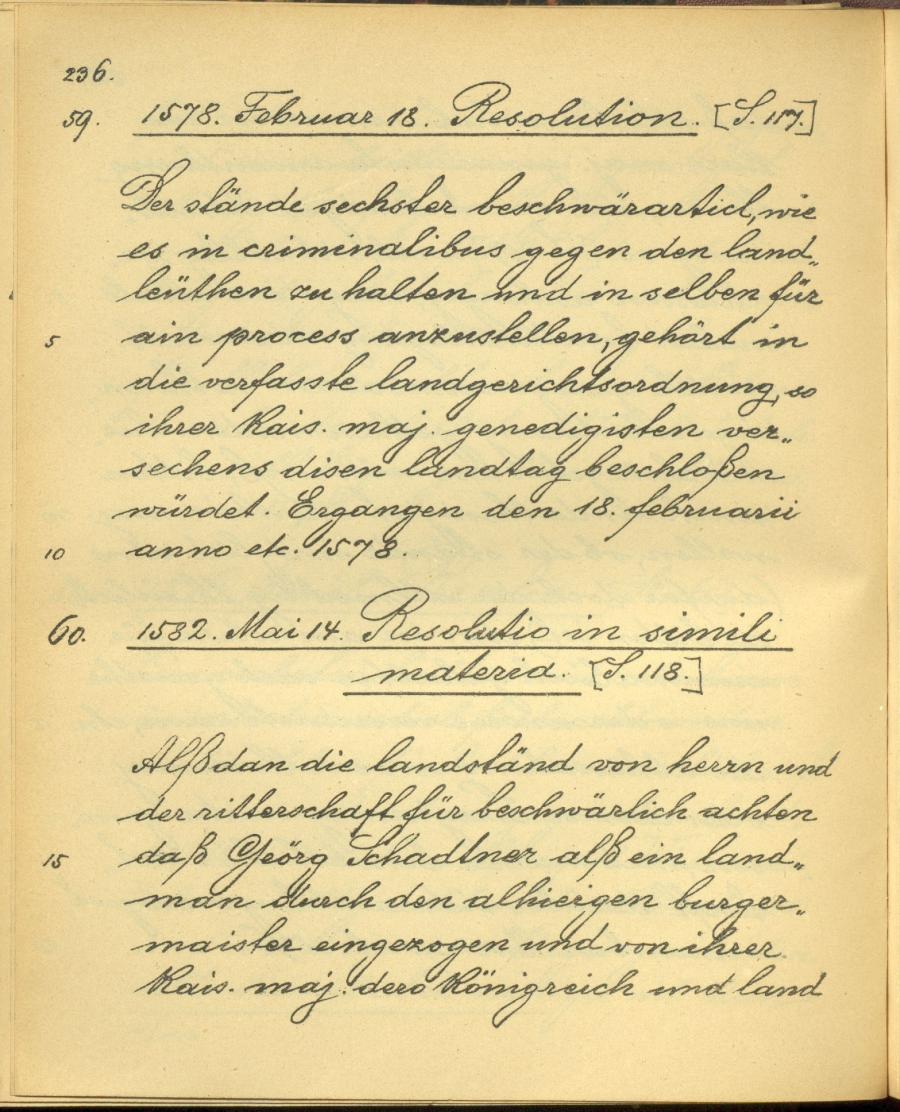 236.
59. 1578. Februar 18. Resolution. [S. 117.]
Der stände sechster beschwärarticl, wie
es in criminalibus gegen den land„
leüthen zu halten und in selben für
5 ain process anzustellen, gehört in
die verfasste landgerichtsordnung, so
ihrer Kais. maj. genedigisten ver„
sechens disen landtag beschloßen
würdet. Ergangen den 18. februarii
10 anno etc. 1578.
60. 1582. Mai 14. Resolutio in simili
materia. [S. 118.]
Alßdan die landständ von herrn und
der ritterschaft für beschwärlich achten
15 daß Geörg Schadtner alß ein land„
man durch den alhieigen burger„
maister eingezogen und von ihrer
Kais. maj. dero Königreich und land